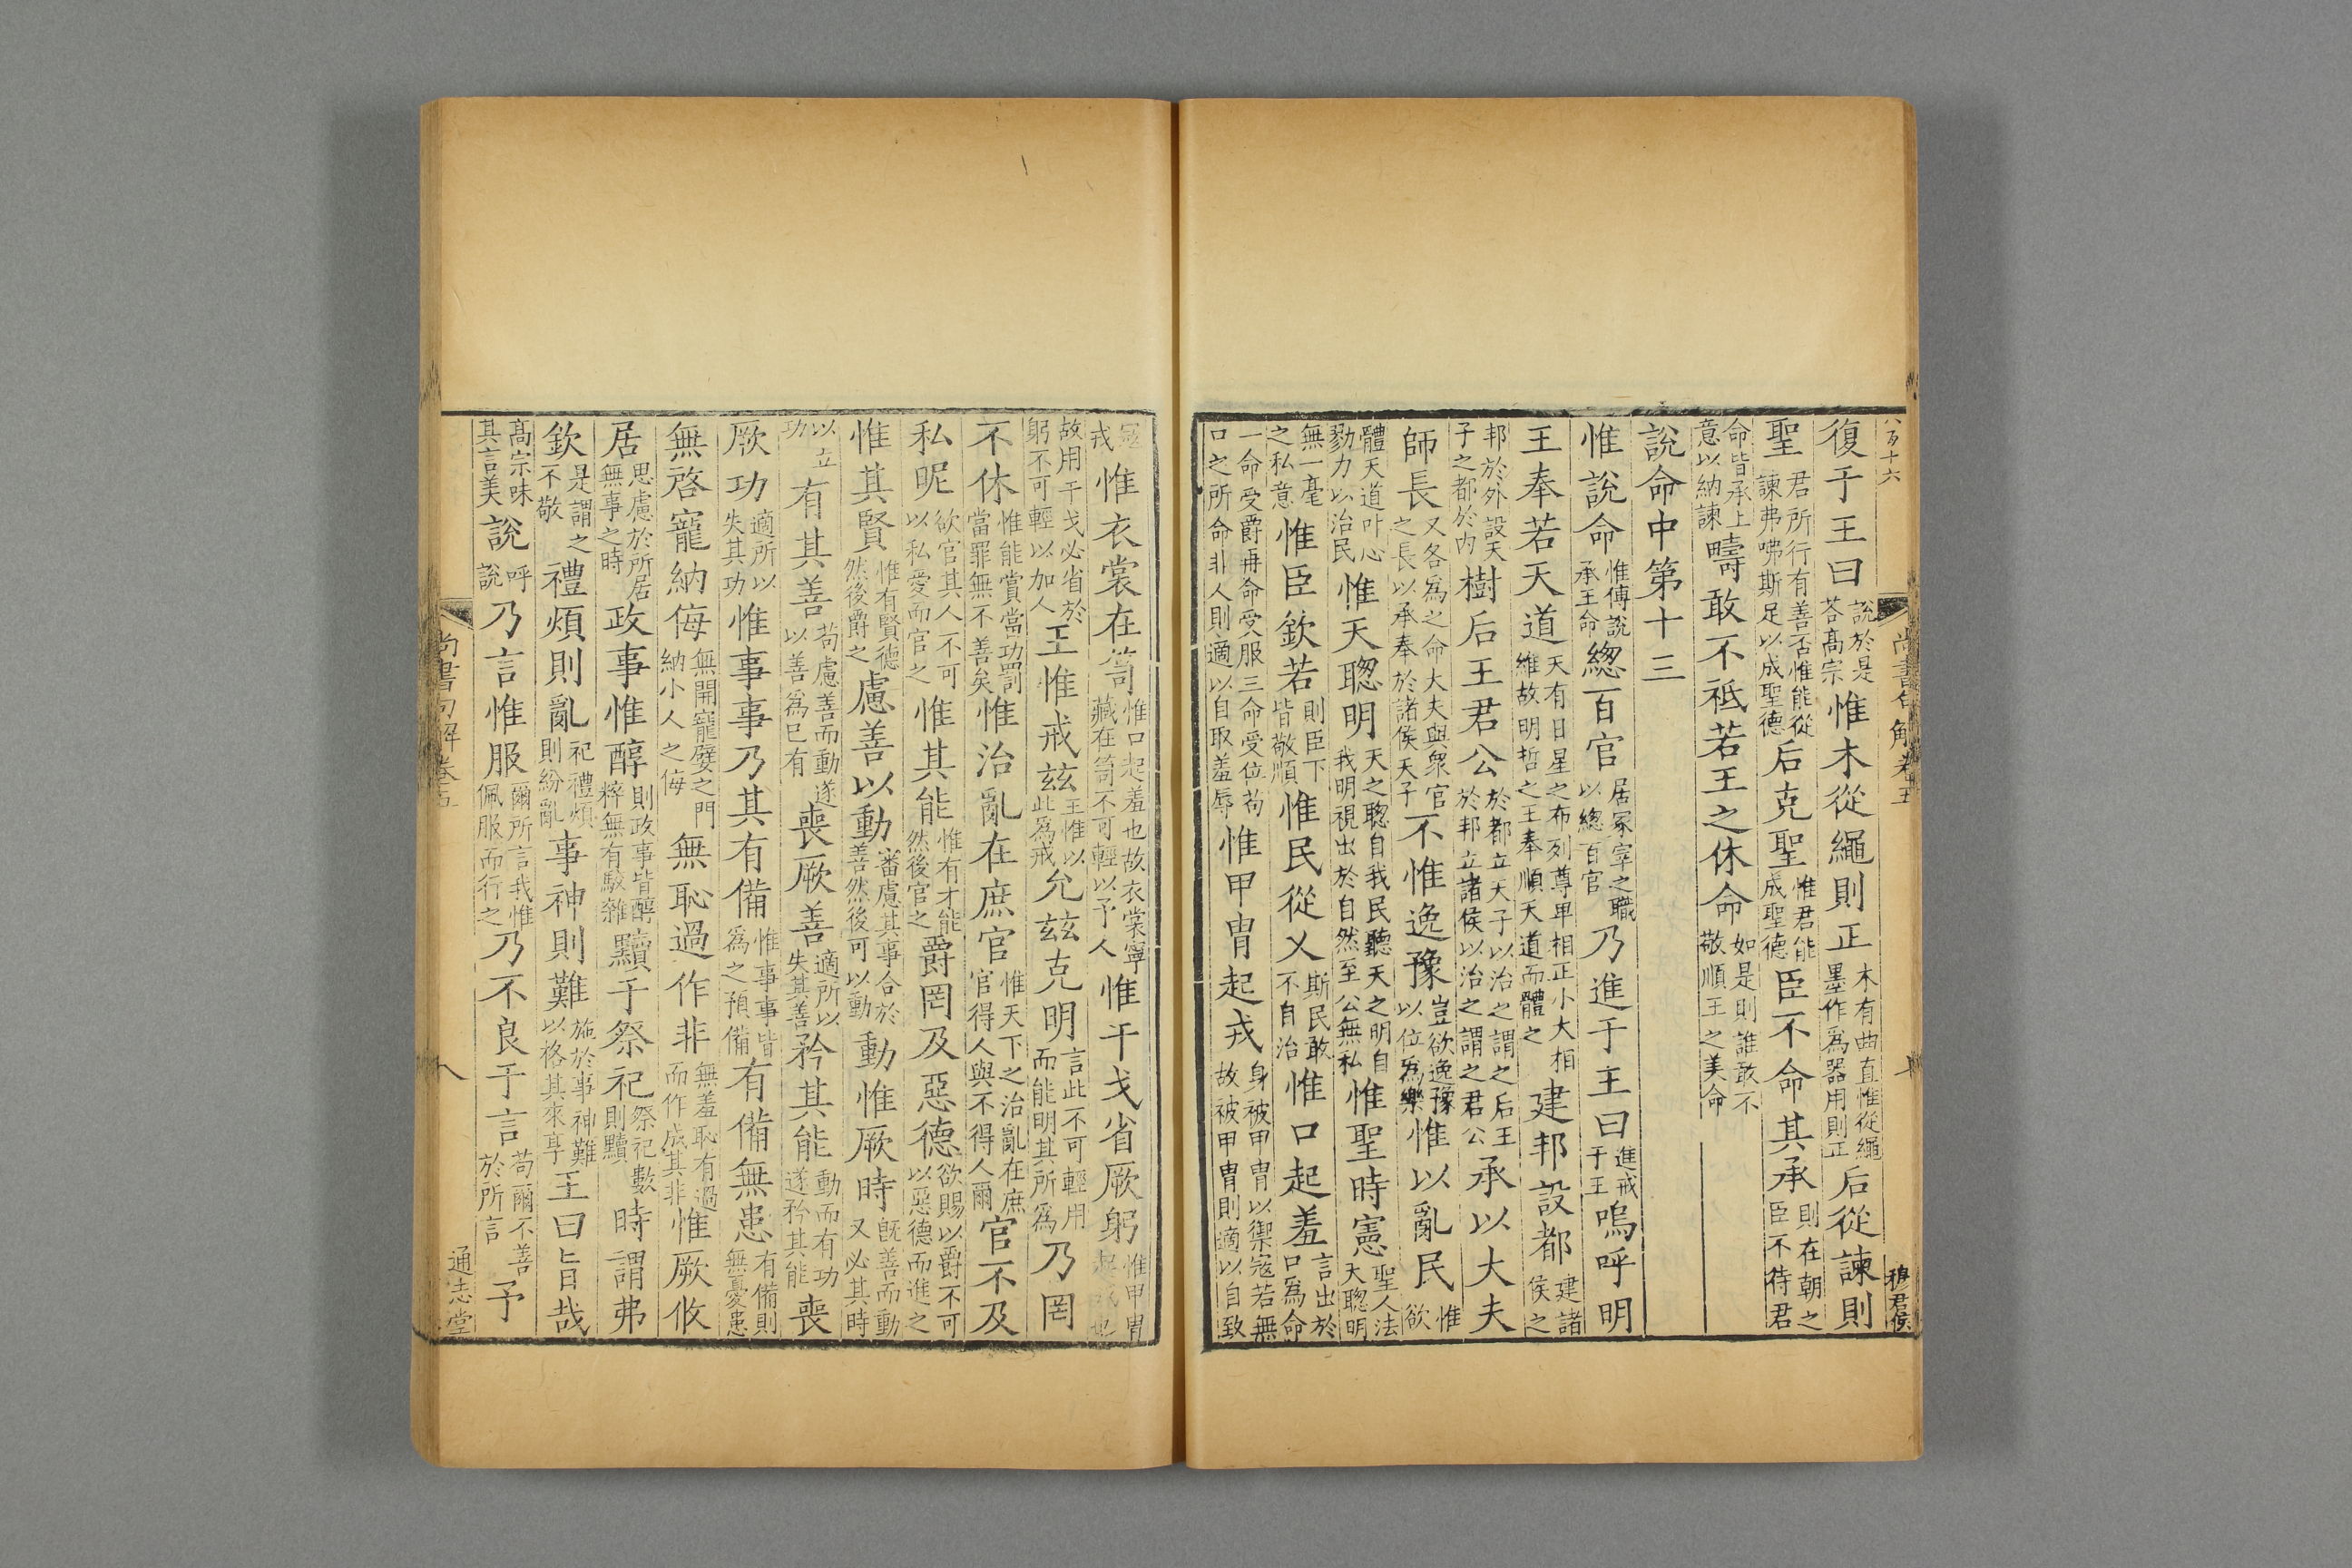 八百十六 尚書句解卷五 七 穆君侯
復于王曰說於是荅髙宗惟木從繩則正木有曲直惟從繩墨作爲器用則正后從諫則
聖君所行有善否惟能從諫弗咈斯足以成聖德后克聖惟君能成聖德臣不命其承則在朝之臣不待君
命皆承上意以納諫疇敢不祗若王之休命如是則誰敢不敬順王之美命
說命中第十三
惟說命惟傅說承王命緫百官居冢宰之職以緫百官乃進于王曰進戒于王嗚呼明
王奉若天道天有日星之布列尊卑相正小大相維故明哲之王奉順天道而體之建邦設都建諸侯之
邦於外設天子之都於内樹后王君公於都立天子以治之謂之后王於邦立諸侯以治之謂之君公承以大夫
師長又各爲之命大夫與衆官之長以承奉於諸侯天子不惟逸豫豈欲逸豫以位爲樂惟以亂民惟欲
體天道叶心勠力以治民惟天聦明天之聦自我民聽天之明自我明視出於自然至公無私惟聖時憲聖人法天聦明
無一毫之私意惟臣欽若則臣下皆敬順惟民從乂斯民敢不自治惟口起羞言出於口爲命
一命受爵再命受服三命受位苟口之所命非人則適以自取羞辱惟甲胄起戎身被甲胄以禦寇若無故被甲胄則適以自致
寇戎惟衣裳在笥惟口起羞也故衣裳寧藏在笥不可輕以予人惟干戈省厥躬惟甲胄起戎也
故用干戈必省於躬不可輕以加人王惟戒茲王惟以此爲戒允茲克明言此不可輕用而能明其所爲乃罔
不休惟能賞當功罰當罪無不善矣惟治亂在庶官惟天下之治亂在庶官得人與不得人爾官不及
私昵欲官其人不可以私愛而官之惟其能惟有才能然後官之爵罔及惡德欲賜以爵不可以惡德而進之
惟其賢惟有賢德然後爵之慮善以動審慮其事合於善然後可以動動惟厥時旣善而動又必其時
以立功有其善苟慮善而動遂以善爲已有喪厥善適所以失其善矜其能動而有功遂矜其能喪
厥功適所以失其功惟事事乃其有備惟事事皆爲之預備有備無患有備則無憂患
無啓寵納侮無開寵嬖之門納小人之侮無恥過作非無羞恥有過而作成其非惟厥攸
居思慮於所居無事之時政事惟醇則政事皆醇粹無有駁雜黷于祭祀祭祀數則黷時謂弗
欽是謂之不敬禮煩則亂祀禮煩則紛亂事神則難施於事神難以格其來享王曰旨哉
髙宗味其言美說呼說乃言惟服爾所言我惟佩服而行之乃不良于言苟爾不善於所言予
尚書句解卷五 八 通志堂